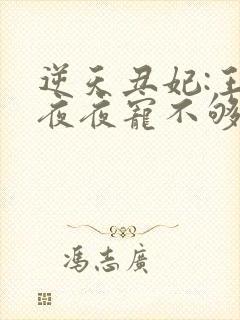 逆天丑妃:王
夜夜寵不够
馮志廣